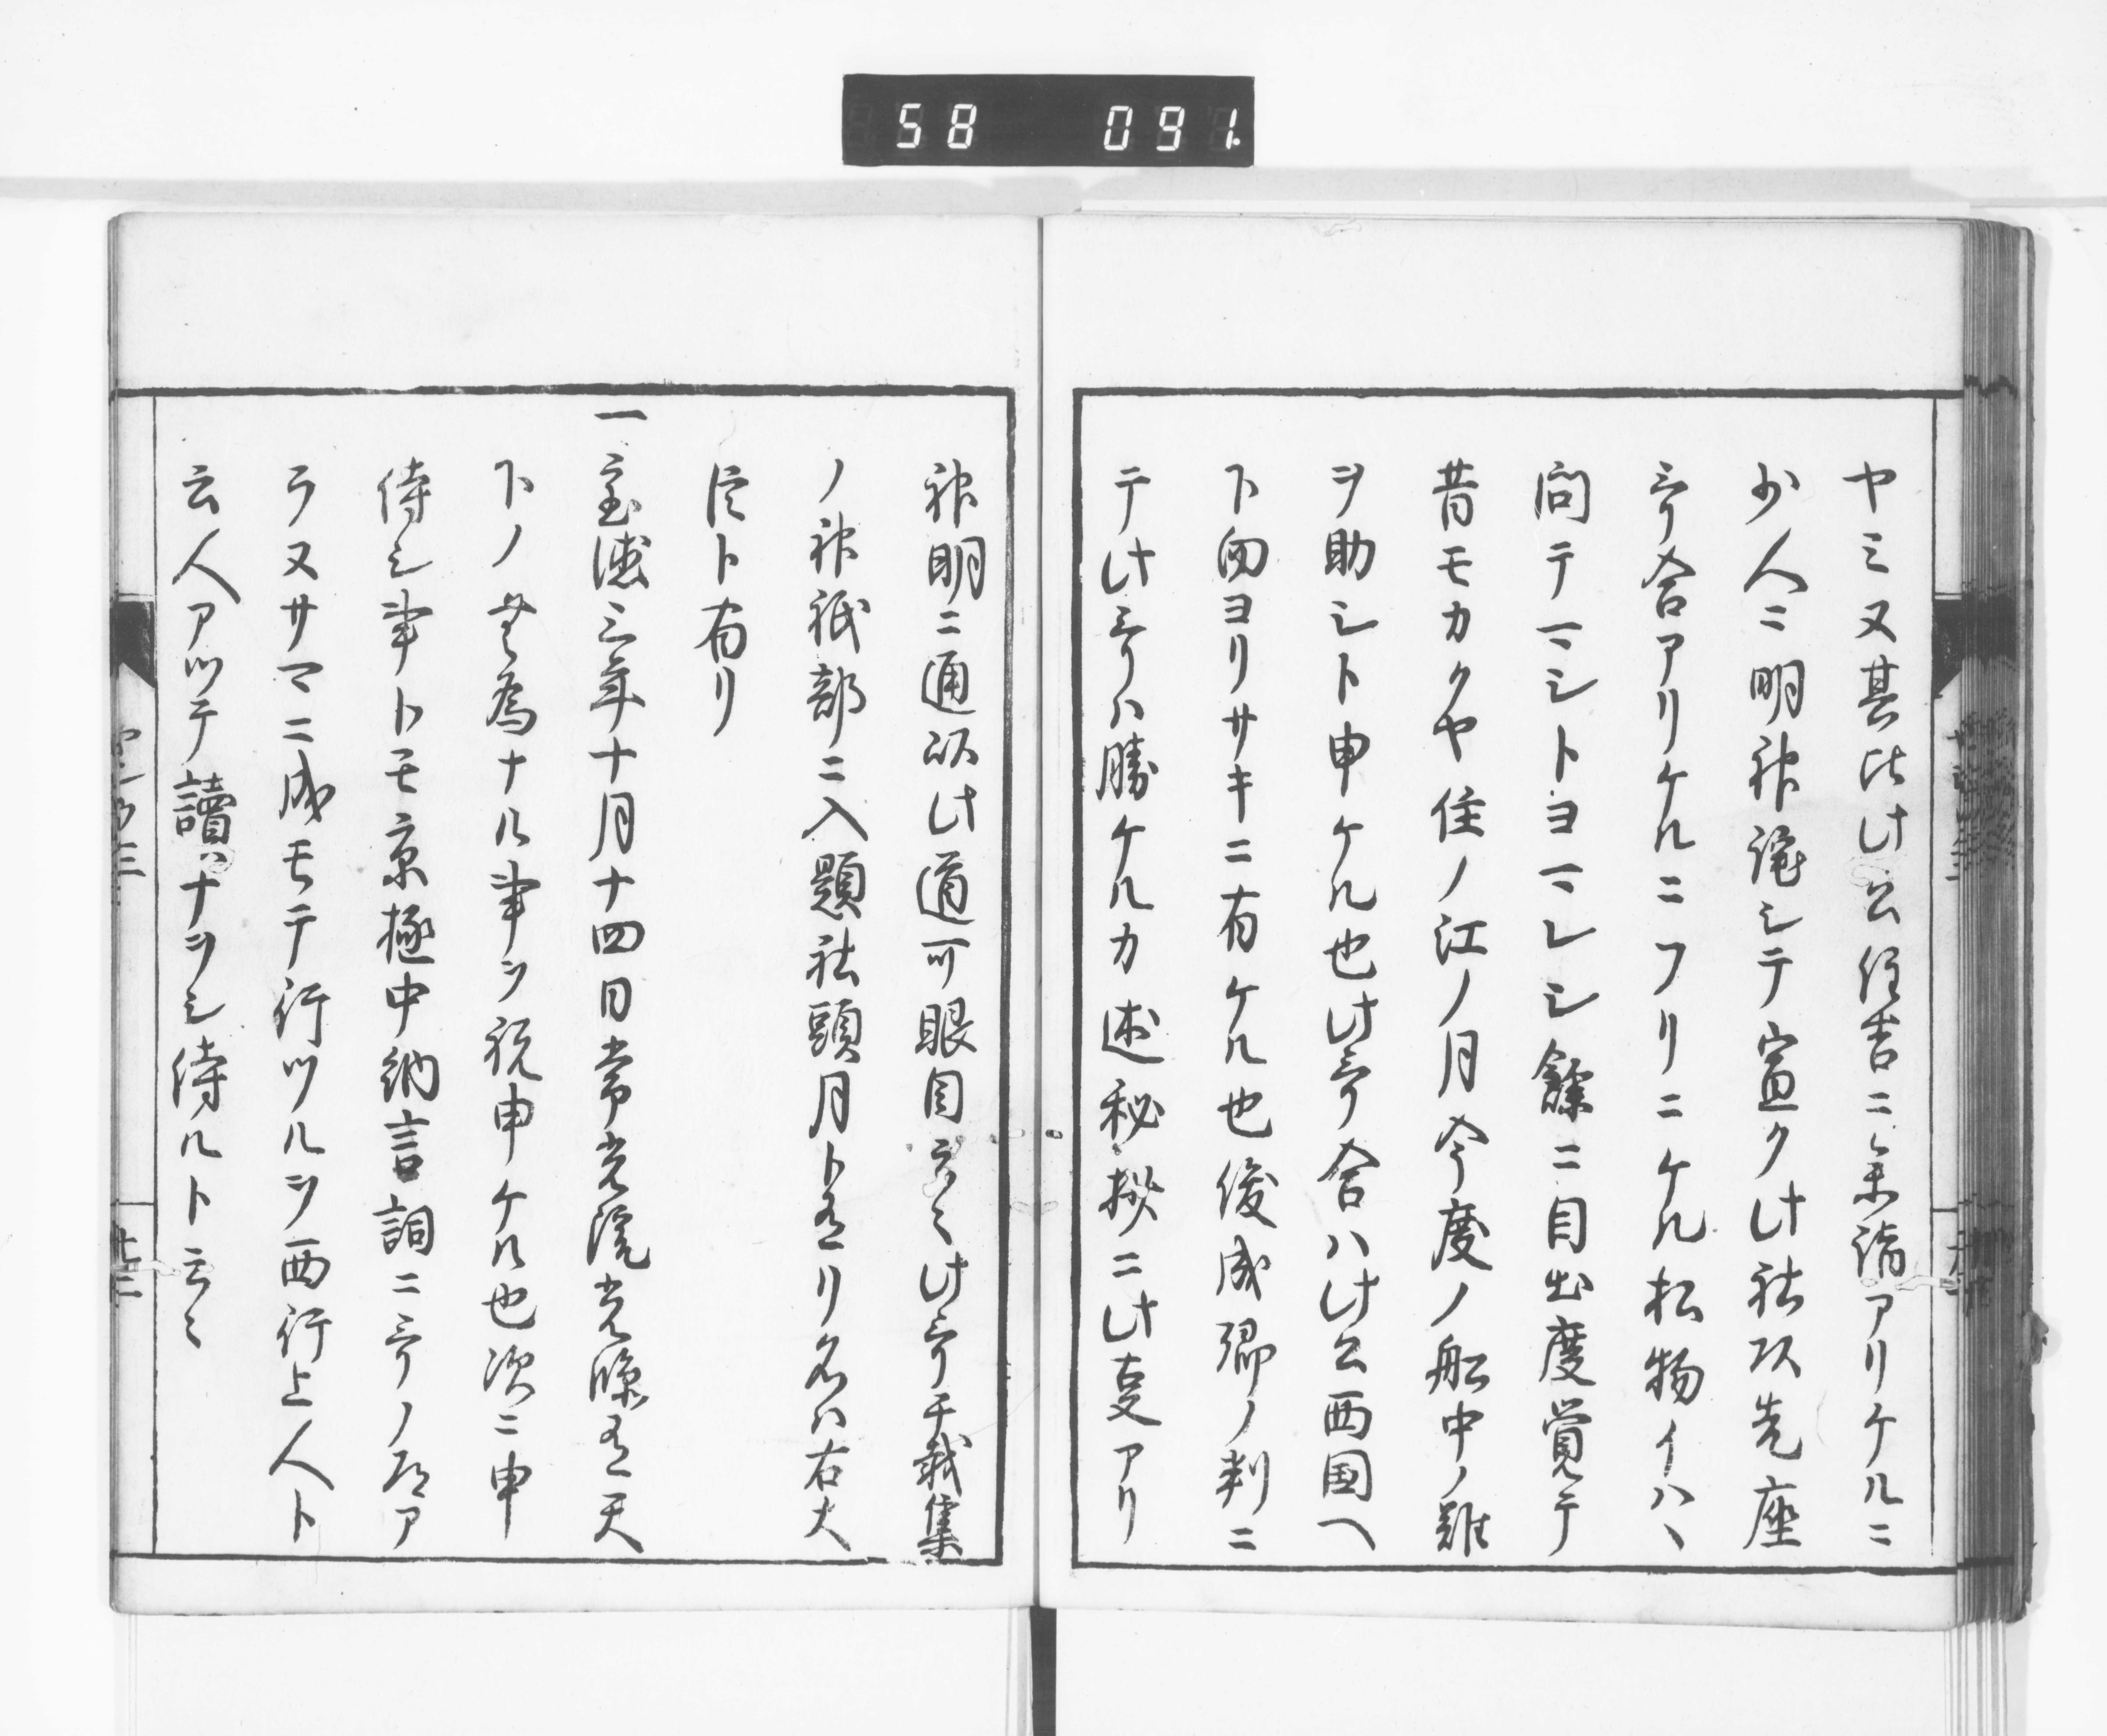 58 091
ヤミ又其比此公住吉ニ参詣アリケルニ
少人ニ明神詫シテ宣ク此社頭先座
哥合アリケルニフリニケル松物イハヽ
問テマシトヨマレシ餘ニ目出度覚テ
昔モカクヤ住ノ江ノ月今度ノ船中ノ難
ヲ助シト申ケル也此哥合ハ此公西国ヘ
下向ヨリサキニ有ケル也俊成卿ノ判ニ
テ此哥ハ勝ケルカ述秘抄ニ此叓アリ
神明ニ通次此道可眼目云〻此哥千載集
ノ神祇部ニ入題社頭月ト有リ名ハ右大
臣ト有リ
一至徳三年十月十四日常光院尭[?]有天
下ノ無為ナル事ヲ祝申ケル也次ニ申
侍シ事トモ京極中納言詞ニ哥ノ[?]ア
ラヌサマニ成モテ行ツルヲ西行上人ト
云人アツテ讀ハナヲシ侍ルト云〻